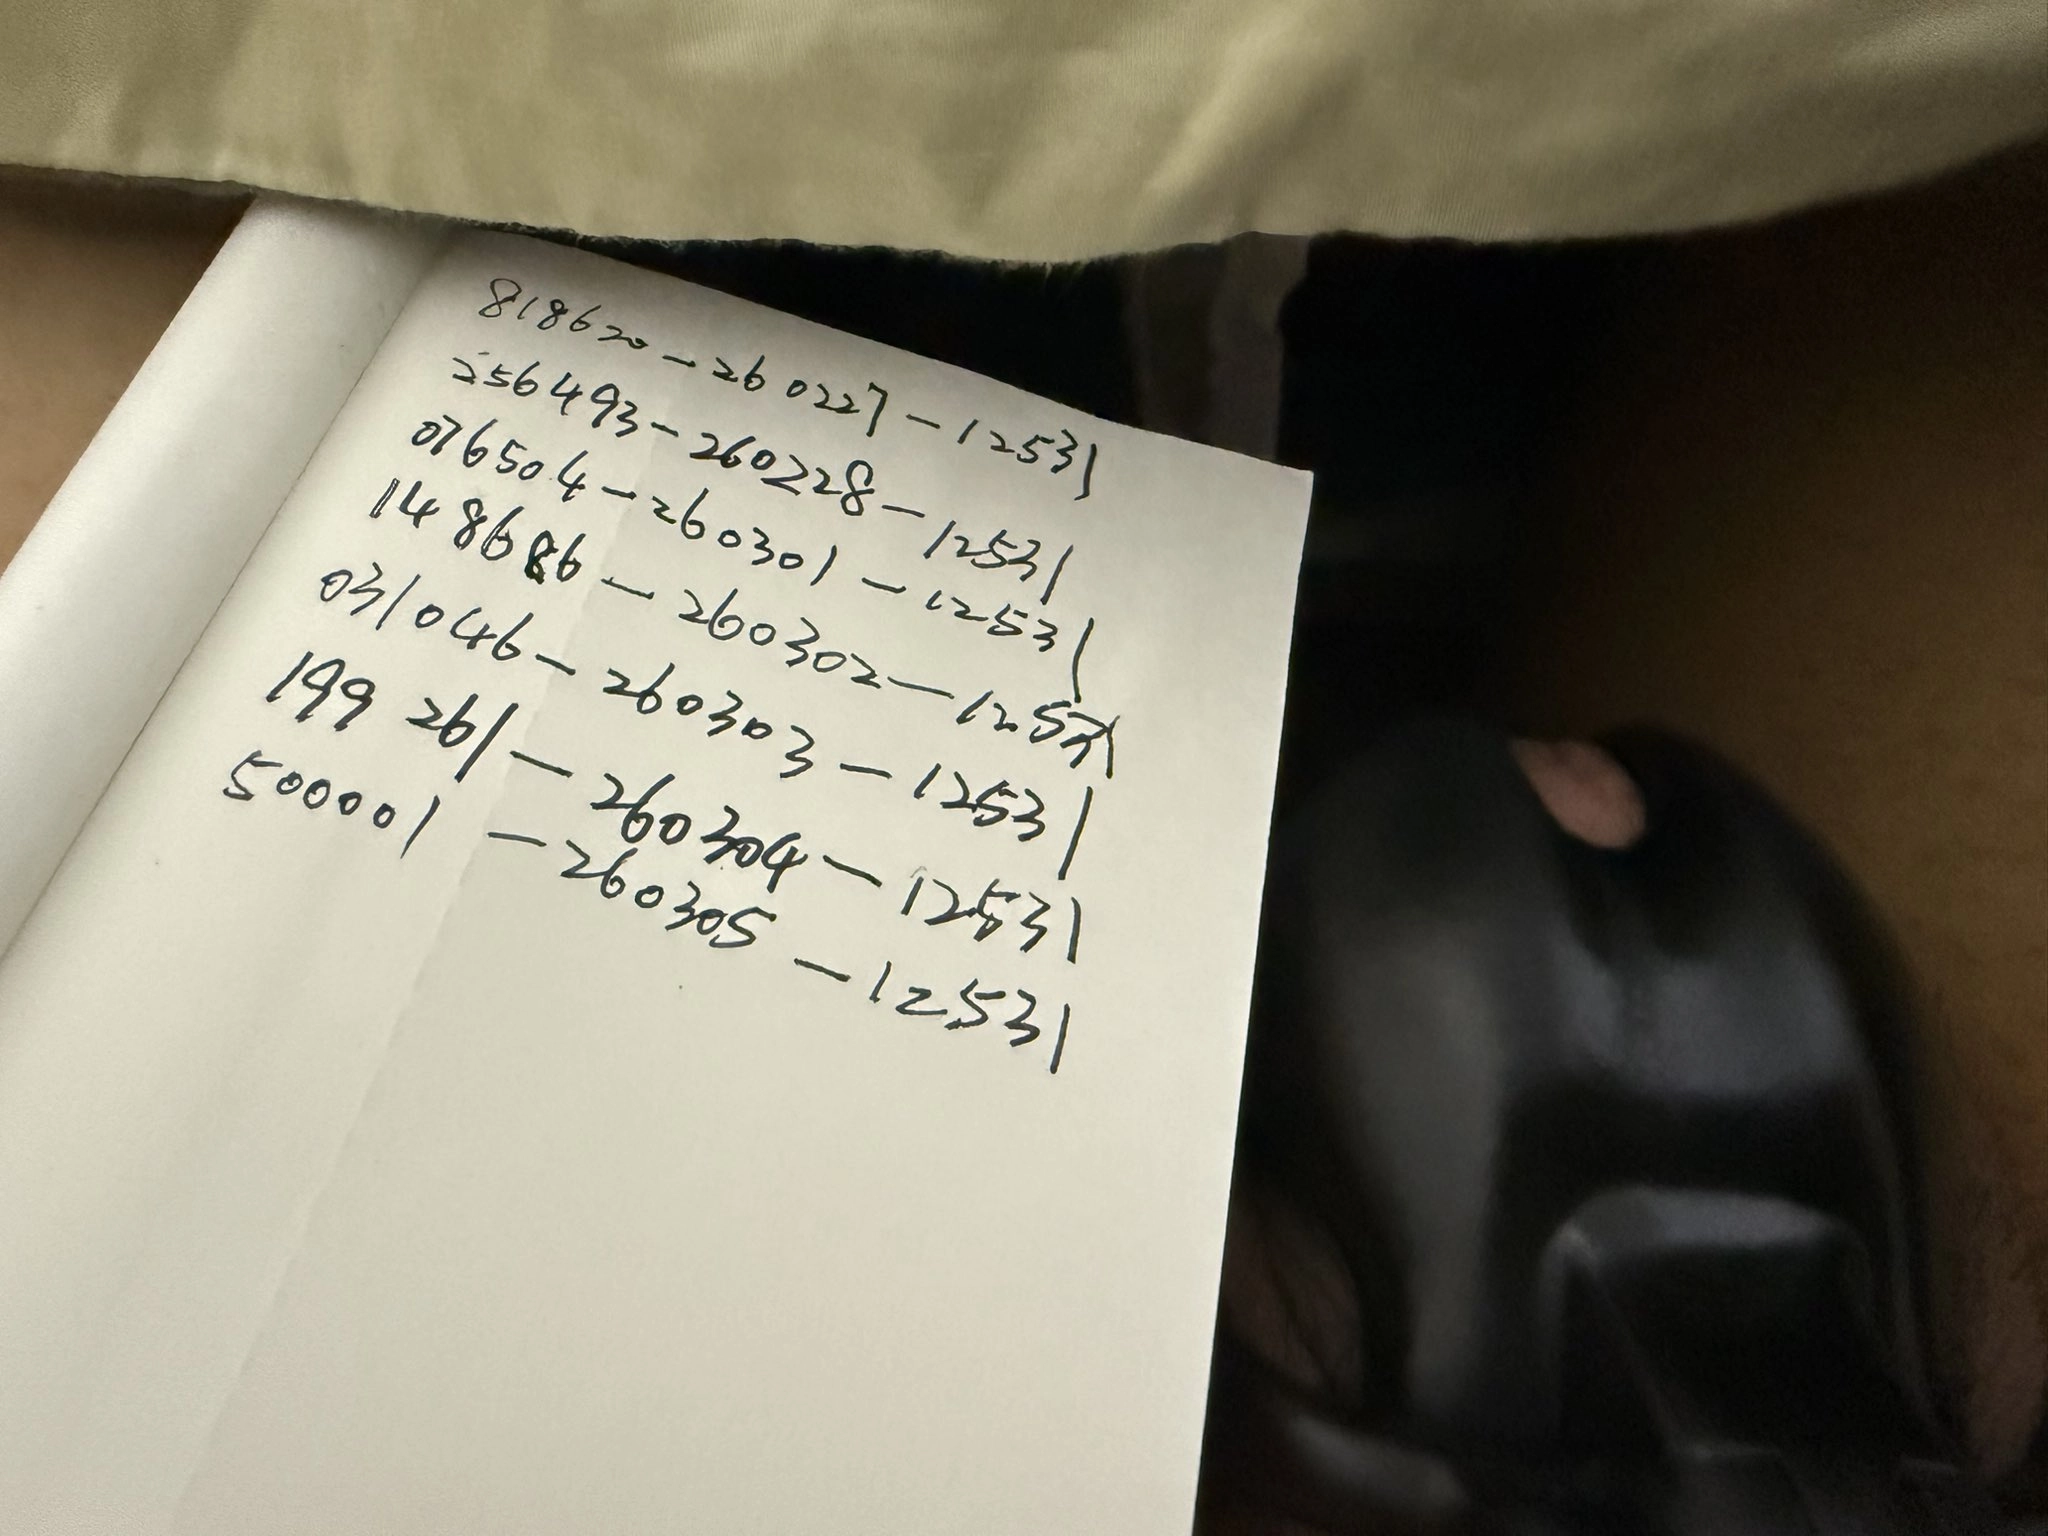 818620-260227-12531
256493-260228-12531
076504-260301-12531
148686-260302-12531
031046-260303-12531
199261-260304-12531
500001-260305-12531